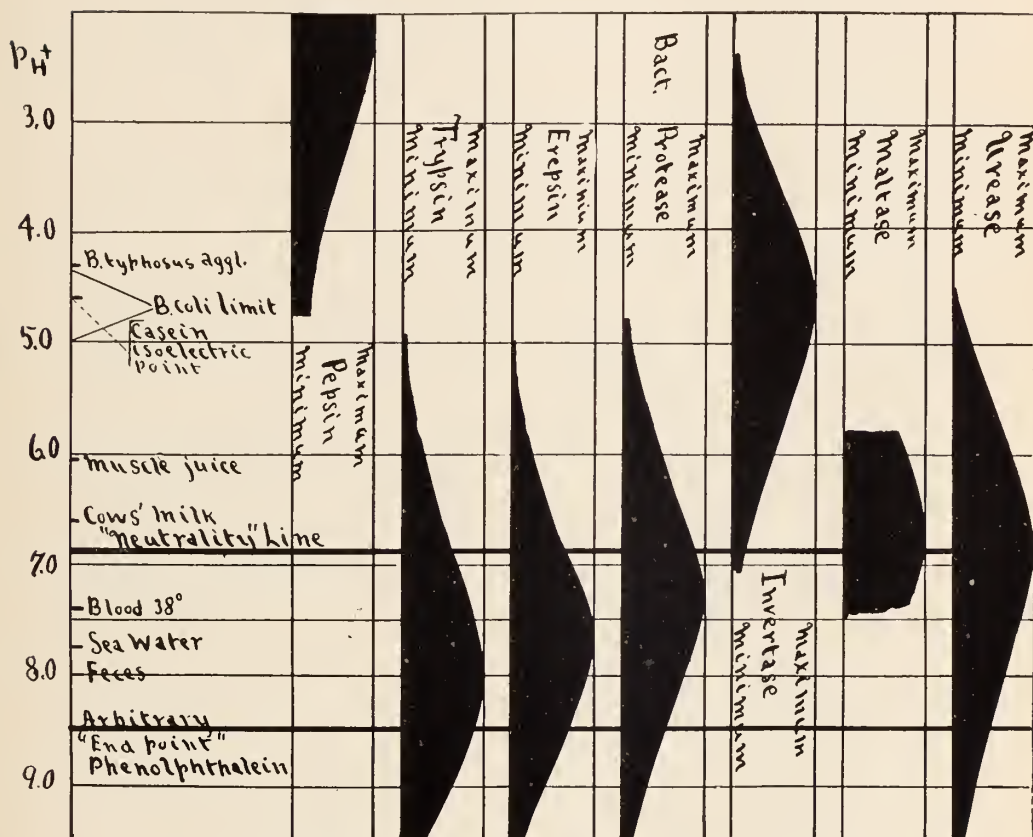 pH+
3.0
4.0
5.0
6.0
7.0
8.0
9.0
B. typhosus aggl.
B. coli limit
Casein
isoelectric
point
Muscle juice
Cows' milk
"Neutrality" Line
Blood 38°
Sea Water
Feces
Arbitrary
"End point"
Phenolphthalein
maximum
Pepsin
minimum
maximum
Trypsin
minimum
maximum
Erepsin
minimum
Bact.
maximum
Protease
minimum
maximum
Invertase
minimum
maximum
Maltase
minimum
maximum
Urease
minimum